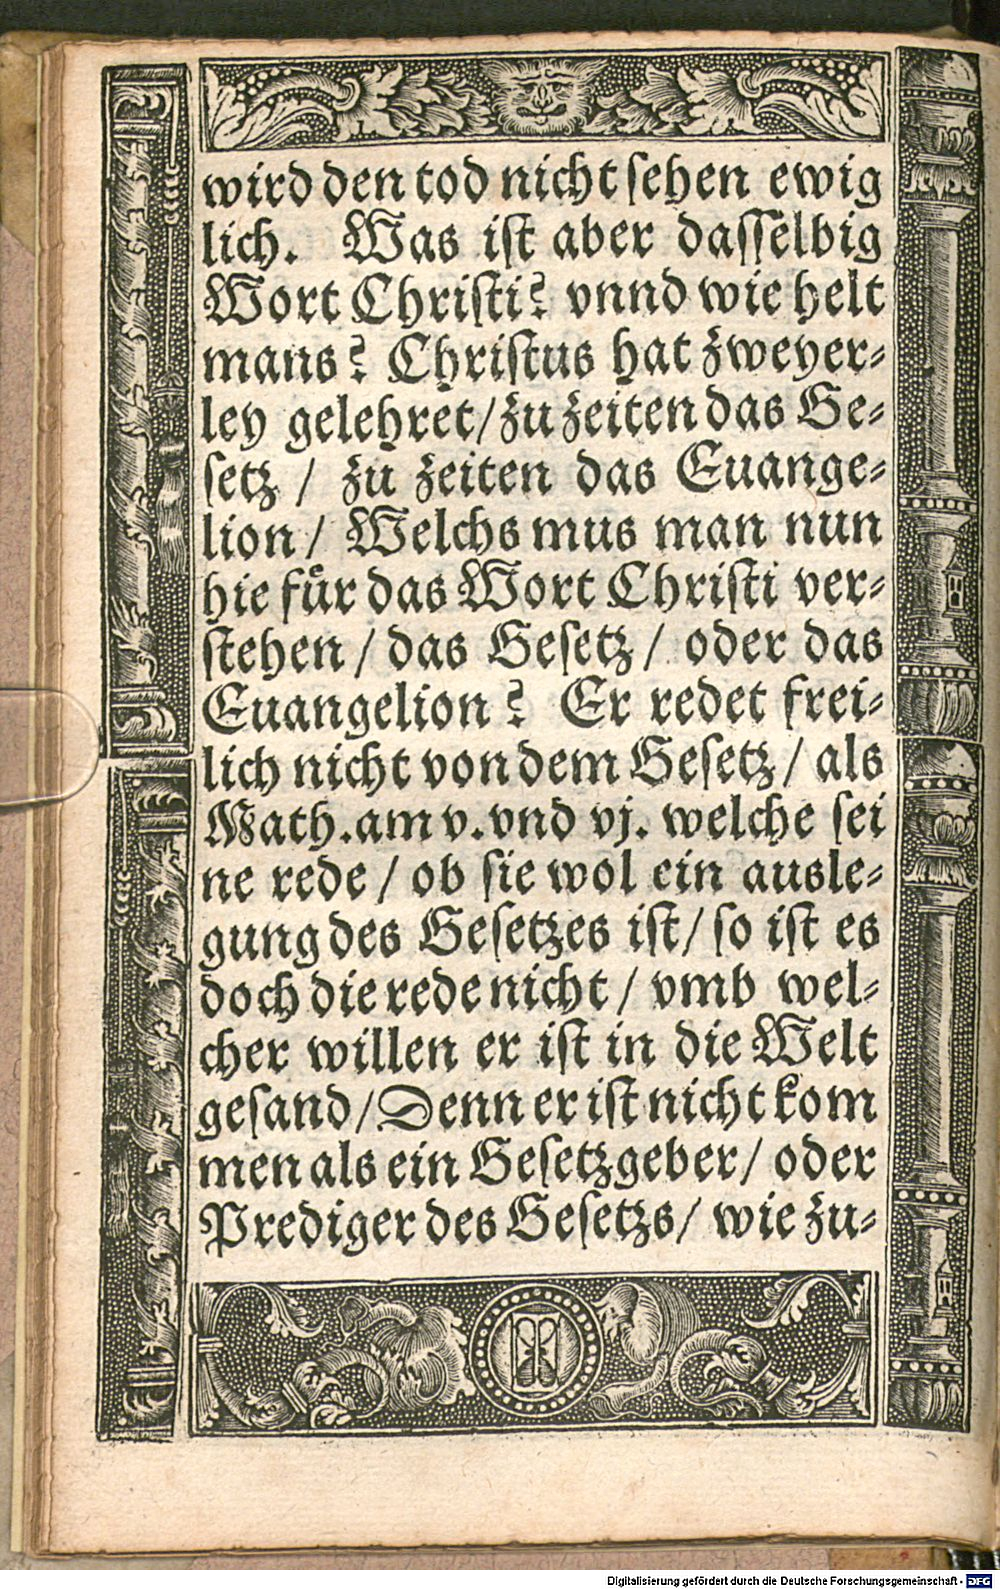 wird den tod nicht sehen ewig
lich. Was ist aber dasselbig
Wort Christi? vnnd wie helt
mans? Christus hat zweyer-
ley gelehret/ zu zeiten das Ge-
setz / zu zeiten das Euange-
lion/ Welchs mus man nun
hie fuͤr das Wort Christi ver-
stehen / das Gesetz / oder das
Euangelion? Er redet frei-
lich nicht von dem Gesetz / als
Math. am v. vnd vj. welche sei
ne rede / ob sie wol ein ausle-
gung des Gesetzes ist/ so ist es
doch die rede nicht / vmb wel-
cher willen er ist in die Welt
gesand/ Denn er ist nicht kom
men als ein Gesetzgeber/ oder
Prediger des Gesetzs/ wie zu-
Digitalisierung gefördert durch die Deutsche Forschungsgemeinschaft - DFG